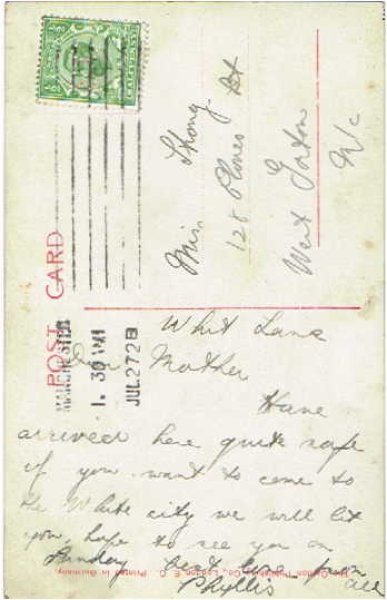 POST CARD
1. 30 AM
JUL 27 28
Miss Strong.
128 St
West Gorton
M/c
Whit Lane
Dear Mother
Have
arrived here quite safe
if you want to come to
the White city we will let
you, hope to see you on
Sunday best love from all
Phyllis
Publishing Co., London E. C. Printed in Germany